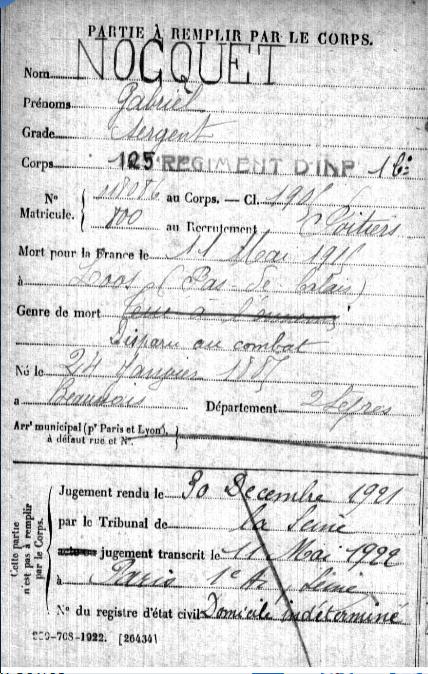 PARTIE À REMPLIR PAR LE CORPS.
Nom NOCQUET
Prénoms Gabriel
Grade Sergent
Corps 125 REGIMENT D'INF
N° au Corps. — Cl.
Matricule. 800 au Recrutement Poitiers
Mort pour la France le 11 Mai
à Loos (Pas-de-Calais)
Genre de mort Tué à l'ennemi
Disparu au combat
Né le 24 Janvier
à Département 2 Sèvres
Arrt municipal (pr Paris et Lyon),
à défaut rue et N°.
Cette partie
n'est pas à remplir
par le Corps.
Jugement rendu le 30 Décembre 1921
par le Tribunal de la Seine
jugement transcrit le 11 Mai 1922
à Paris 1er Ar, Seine
N° du registre d'état civil Domicile indéterminé
-708-1922. [26434]